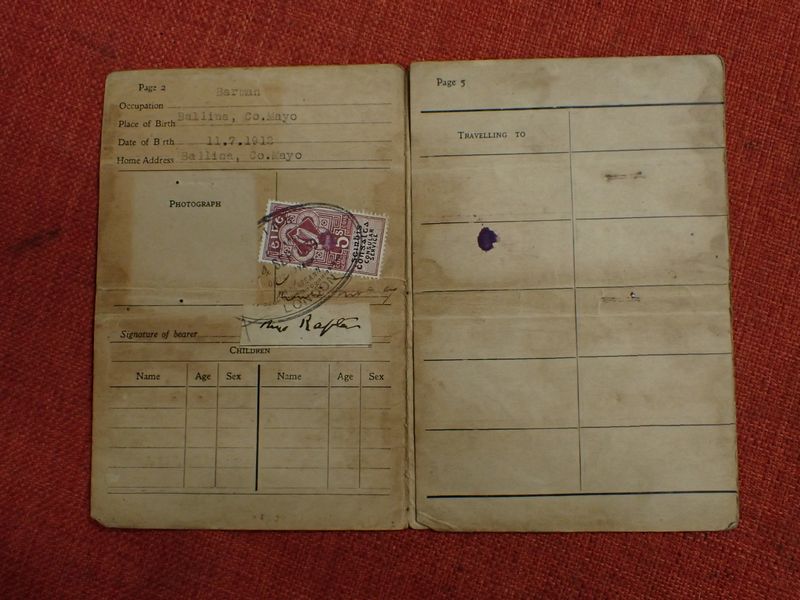 Page 2
Occupation Barman
Place of Birth Ballina, Co.Mayo
Date of Birth 11.7.1912
Home Address Ballina, Co.Mayo
PHOTOGRAPH
éire
5s
Seirbhís
Consalta
CONSULAR
SERVICE
LONDON
Signature of bearer
CHILDREN
Name Age Sex Name Age Sex
Page 5
TRAVELLING TO